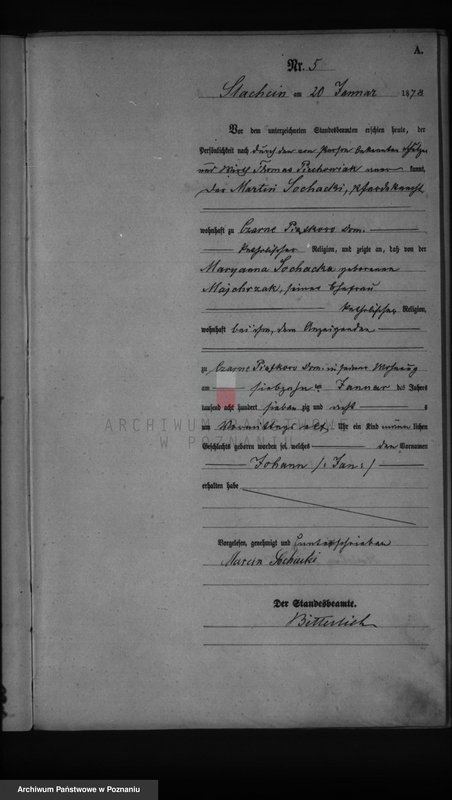 A.
Nr. 5
am 20 Januar 1878
Vor dem unterzeichneten Standesbeamten erschien heute, der
Persönlichkeit nach durch den von Person bekannten
und Wirth Thomas Piechowiak kannt,
der Martin Sochacki, Pferdeknecht
wohnhaft zu Czarne Piątkowo Dom.
katholischer Religion, und zeigte an, daß von der
Maryanna Sochacka geborenen
Majchrzak, seiner Ehefrau
katholischer Religion,
wohnhaft bei ihm, dem Anzeigenden
zu Czarne Piątkowo Dom. in seiner Wohnung
am siebzehn ten Januar des Jahres
tausend acht hundert sieben zig und acht
ARCHIWUM PAŃSTWOWE
W POZNANIU
um Vormittags elf Uhr ein Kind männ lichen
Geschlechts geboren worden sei, welches den Vornamen
Johann /: Jan :/
erhalten habe
Vorgelesen, genehmigt und unterschrieben
Marcin Sochacki
Der Standesbeamte.
Bitterlich
Archiwum Państwowe w Poznaniu